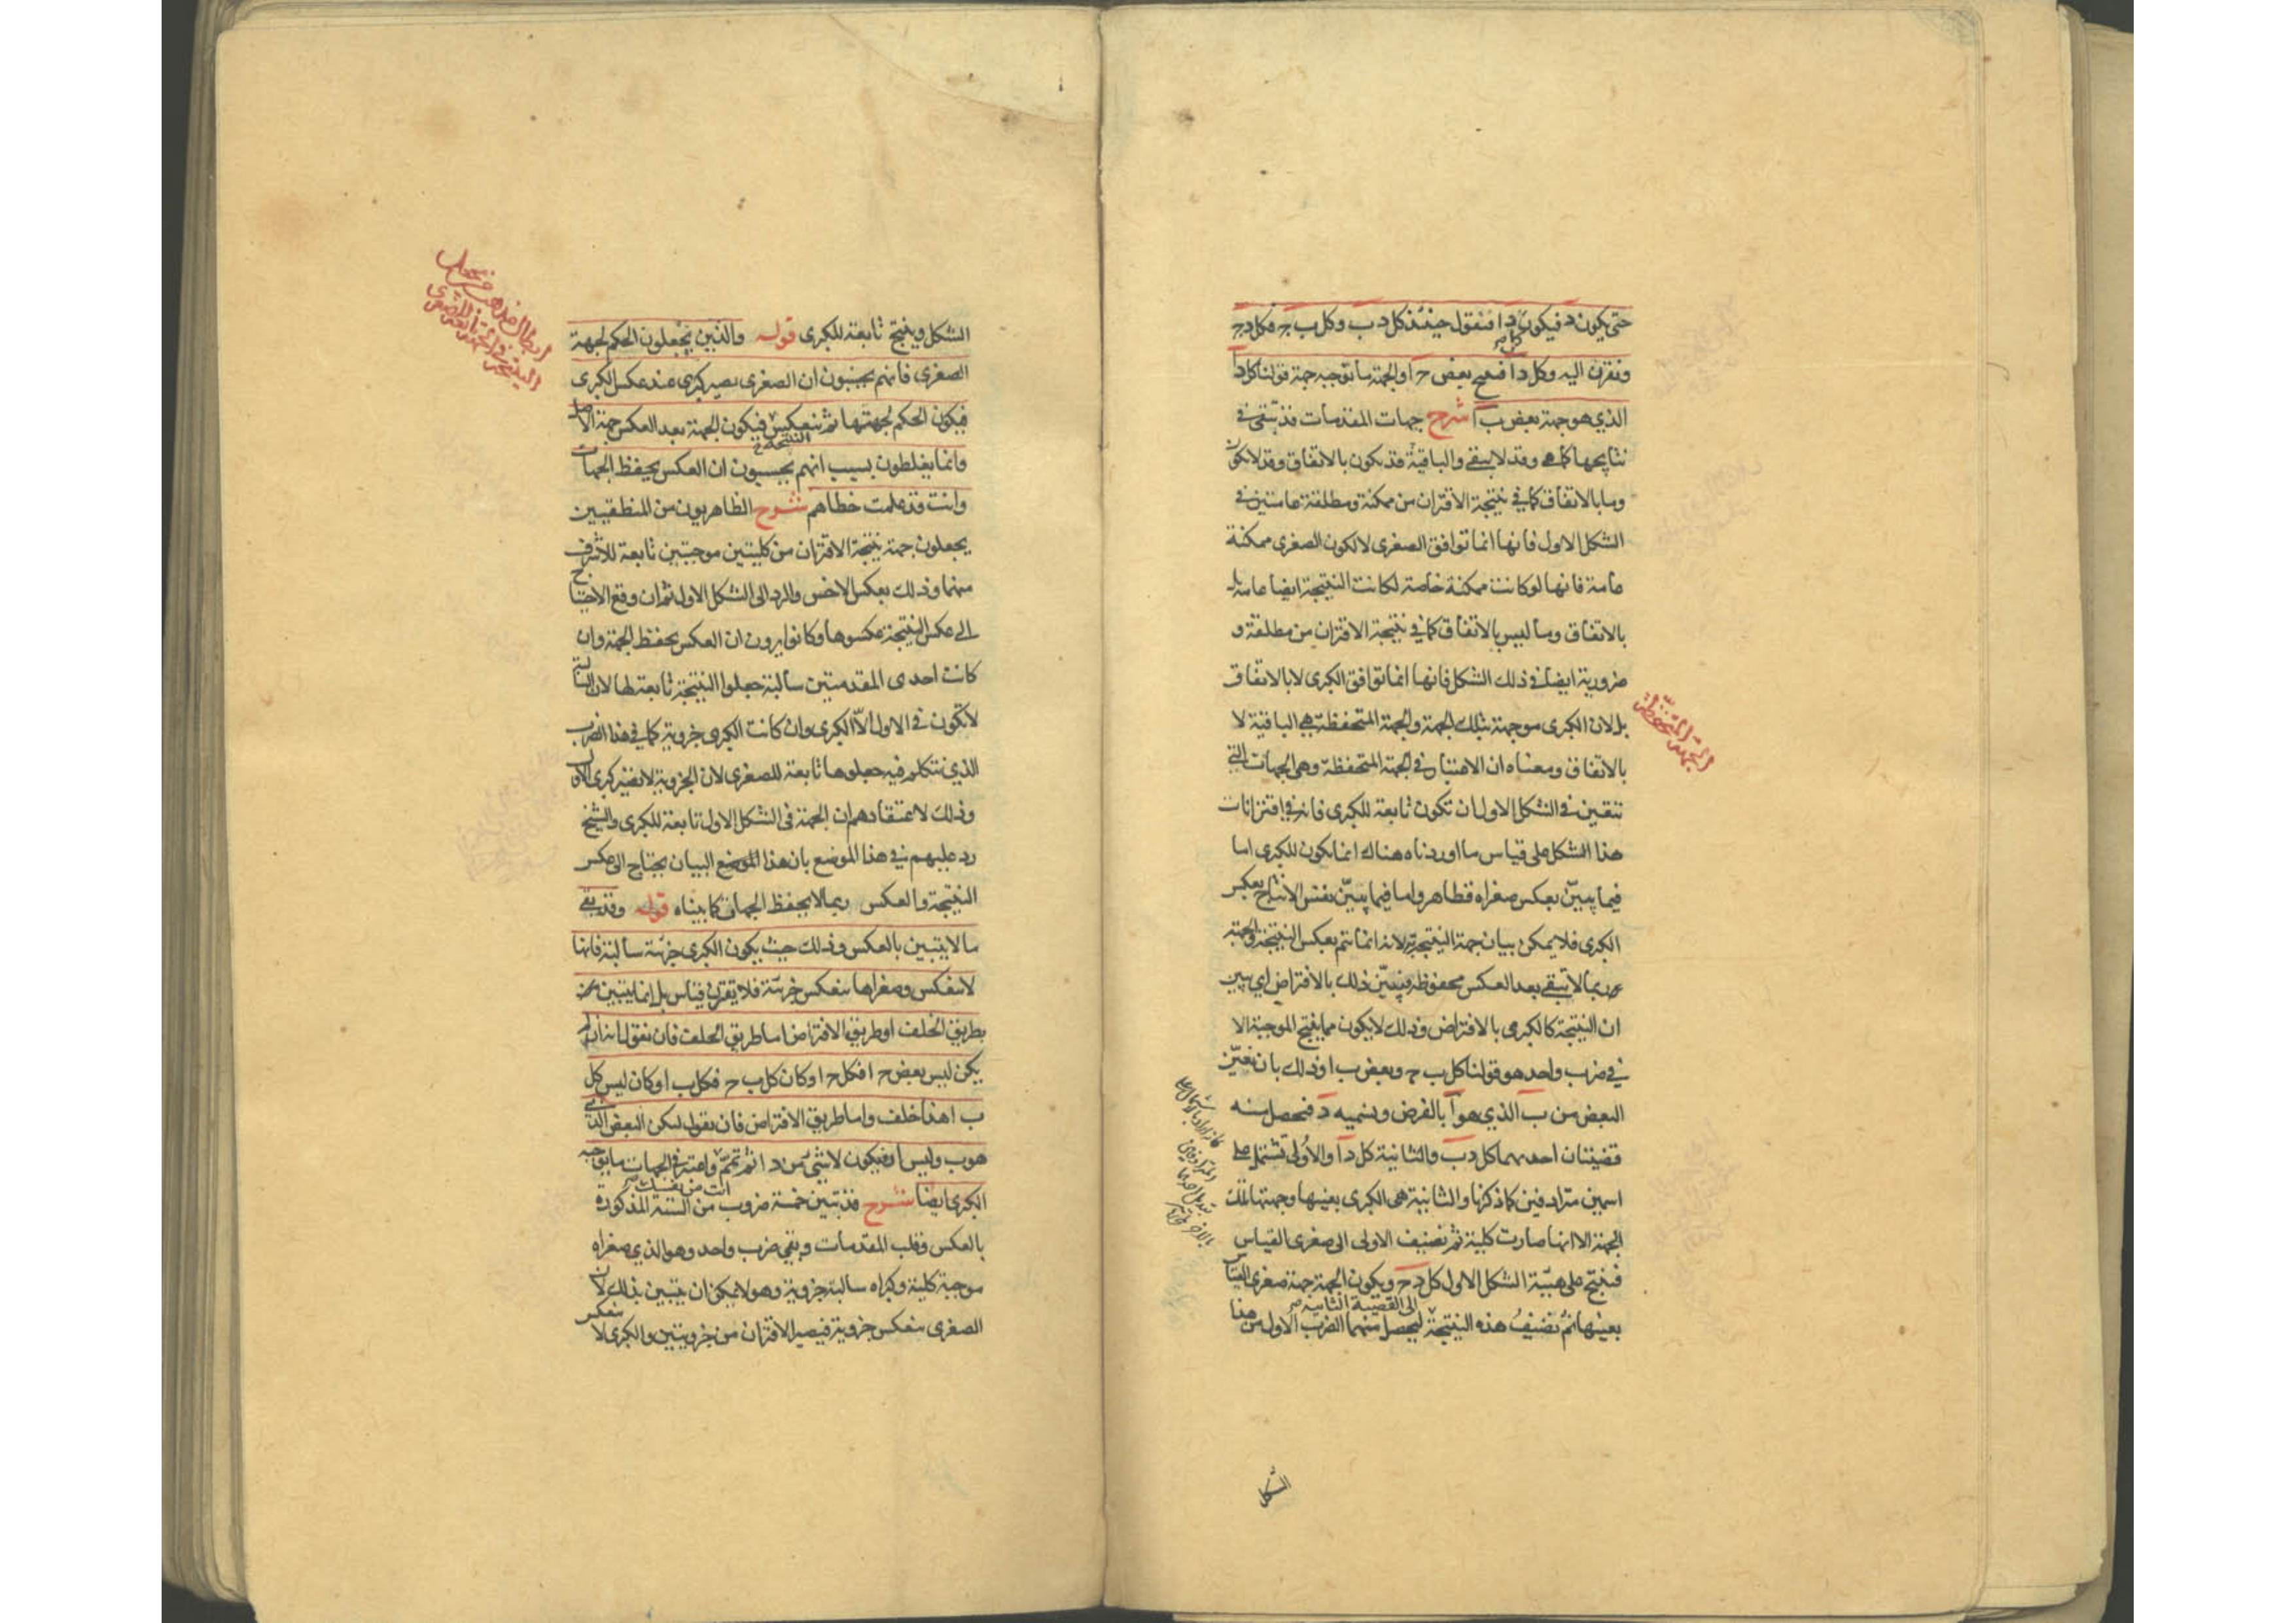 حتى يكون د فيكون د ا فنقول حينئذ كل د ب وكل ب ج فكل د ج
ونقرن اليه وكل د ا فينتج بعض ج ا والجهة ما توجبه جهة قولنا كل د ا
الذي هو جهة بعض ب ا شرح جهات المقدمات قد تبقى في
نتايجها كما هي وقد لا يبقى والباقية قد يكون بالاتفاق وقد لا يكون
وما بالاتفاق كما في نتيجة الاقتران من ممكنة ومطلقة عامتين في
الشكل الاول فانها انما توافق الصغرى لا لكون الصغرى ممكنة
عامة فانها لو كانت ممكنة خاصة لكانت النتيجة ايضا عامة بل
بالاتفاق وما ليس بالاتفاق كما في نتيجة الاقتران من مطلقة و
ضرورية ايضا في ذلك الشكل فانها انما توافق الكبرى لا بالاتفاق
بل لان الكبرى موجهة بتلك الجهة والجهة المتحفظة هي الباقية لا
بالاتفاق ومعناه ان الاعتبار في الجهة المتحفظة وهي الجهات التي
تتعين في الشكل الاول ان تكون تابعة للكبرى فانه في اقترانات
هذا الشكل على قياس ما اوردناه هناك انما يكون للكبرى اما
فيما يبين بعكس صغراه فظاهر واما فيما يبين نفس الانتاج بعكس
الكبرى فلا يمكن بيان جهة النتيجة به لانه انما يتم بعكس النتيجة والجهة
ربما لا تبقى بعد العكس محفوظة فيبين ذلك بالافتراض اي يبين
ان النتيجة كالكبرى بالافتراض وذلك لا يكون مما ينتج الموجبة الا
في ضرب واحد هو قولنا كل ب ج وبعض ب ا وذلك بان نعين
البعض من ب الذي هو ا بالفرض ونسميه د فتحصل منه
قضيتان احديهما كل د ب والثانية كل د ا والاولى تشتمل على
اسمين مترادفين كما ذكرنا والثانية هي الكبرى بعينها وجهتها تلك
الجهة الا انها صارت كلية ثم نضيف الاولى الى صغرى القياس
فينتج على هيئة الشكل الاول كل د ج ويكون الجهة جهة صغرى القياس
بعينها ثم نضيف هذه النتيجة الى القضية الثانية ليحصل منهما الضرب الاول من هذا
الجهة المتحفظة
الشكل
الشكل وينتج تابعة للكبرى قوله والذين يجعلون الحكم لجهة
الصغرى فانهم يحسبون ان الصغرى يصير كبرى عند عكس الكبرى
فيكون الحكم لجهتها ثم تنعكس النتيجة فيكون الجهة بعد العكس جهة الاصل
وانما يغلطون بسبب انهم يحسبون ان العكس يحفظ الجهات
وانت قد علمت خطاهم شرح الظاهريون من المنطقيين
يجعلون جهة نتيجة الاقتران من كليتين موجبتين تابعة للاشرف
منهما وذلك بعكس الاخس والرد الى الشكل الاول ثم ان وقع الاحتياج
الى عكس النتيجة عكسوها وكانوا يرون ان العكس يحفظ الجهة وان
كانت احدى المقدمتين سالبة جعلوا النتيجة تابعة لها لان السالبة
لا تكون في الاول الا الكبرى وان كانت الكبرى جزوية كما في هذا الضرب
الذي نتكلم فيه جعلوها تابعة للصغرى لان الجزوية لا تصير كبرى الاول
وذلك لاعتقادهم ان الجهة في الشكل الاول تابعة للكبرى والشيخ
رد عليهم في هذا الموضع بان هذا الموضع البيان يحتاج الى عكس
النتيجة والعكس ربما لا يحفظ الجهات كما بيناه قوله وقد بقي
ما لا يتبين بالعكس وذلك حيث يكون الكبرى جزئة سالبة فانها
لا تنعكس وصغراها تنعكس جزئة فلا يقترن قياس بل انما يتبين
بطريق الخلف او طريق الافتراض اما طريق الخلف فان نقول انه ان لم
يكن ليس بعض ج ا فكل ج ا وكان كل ب ج فكل ب ا وكان ليس كل
ب ا هذا خلف واما طريق الافتراض فان نقول ليكن البعض الذي
هو ب وليس ا د فيكون لا شئ من د ا ثم تمم انت من نفسك واعتبر في الجهات ما توجبه
الكبرى ايضا شرح قد تبين خمسة ضروب من الستة المذكورة
بالعكس وقلب المقدمات وبقي ضرب واحد وهو الذي صغراه
موجبة كلية وكبراه سالبة جزوية وهو لا يمكن ان يتبين بذلك لان
الصغرى تنعكس جزوية فيصير الاقتران من جزويتين والكبرى لا تنعكس